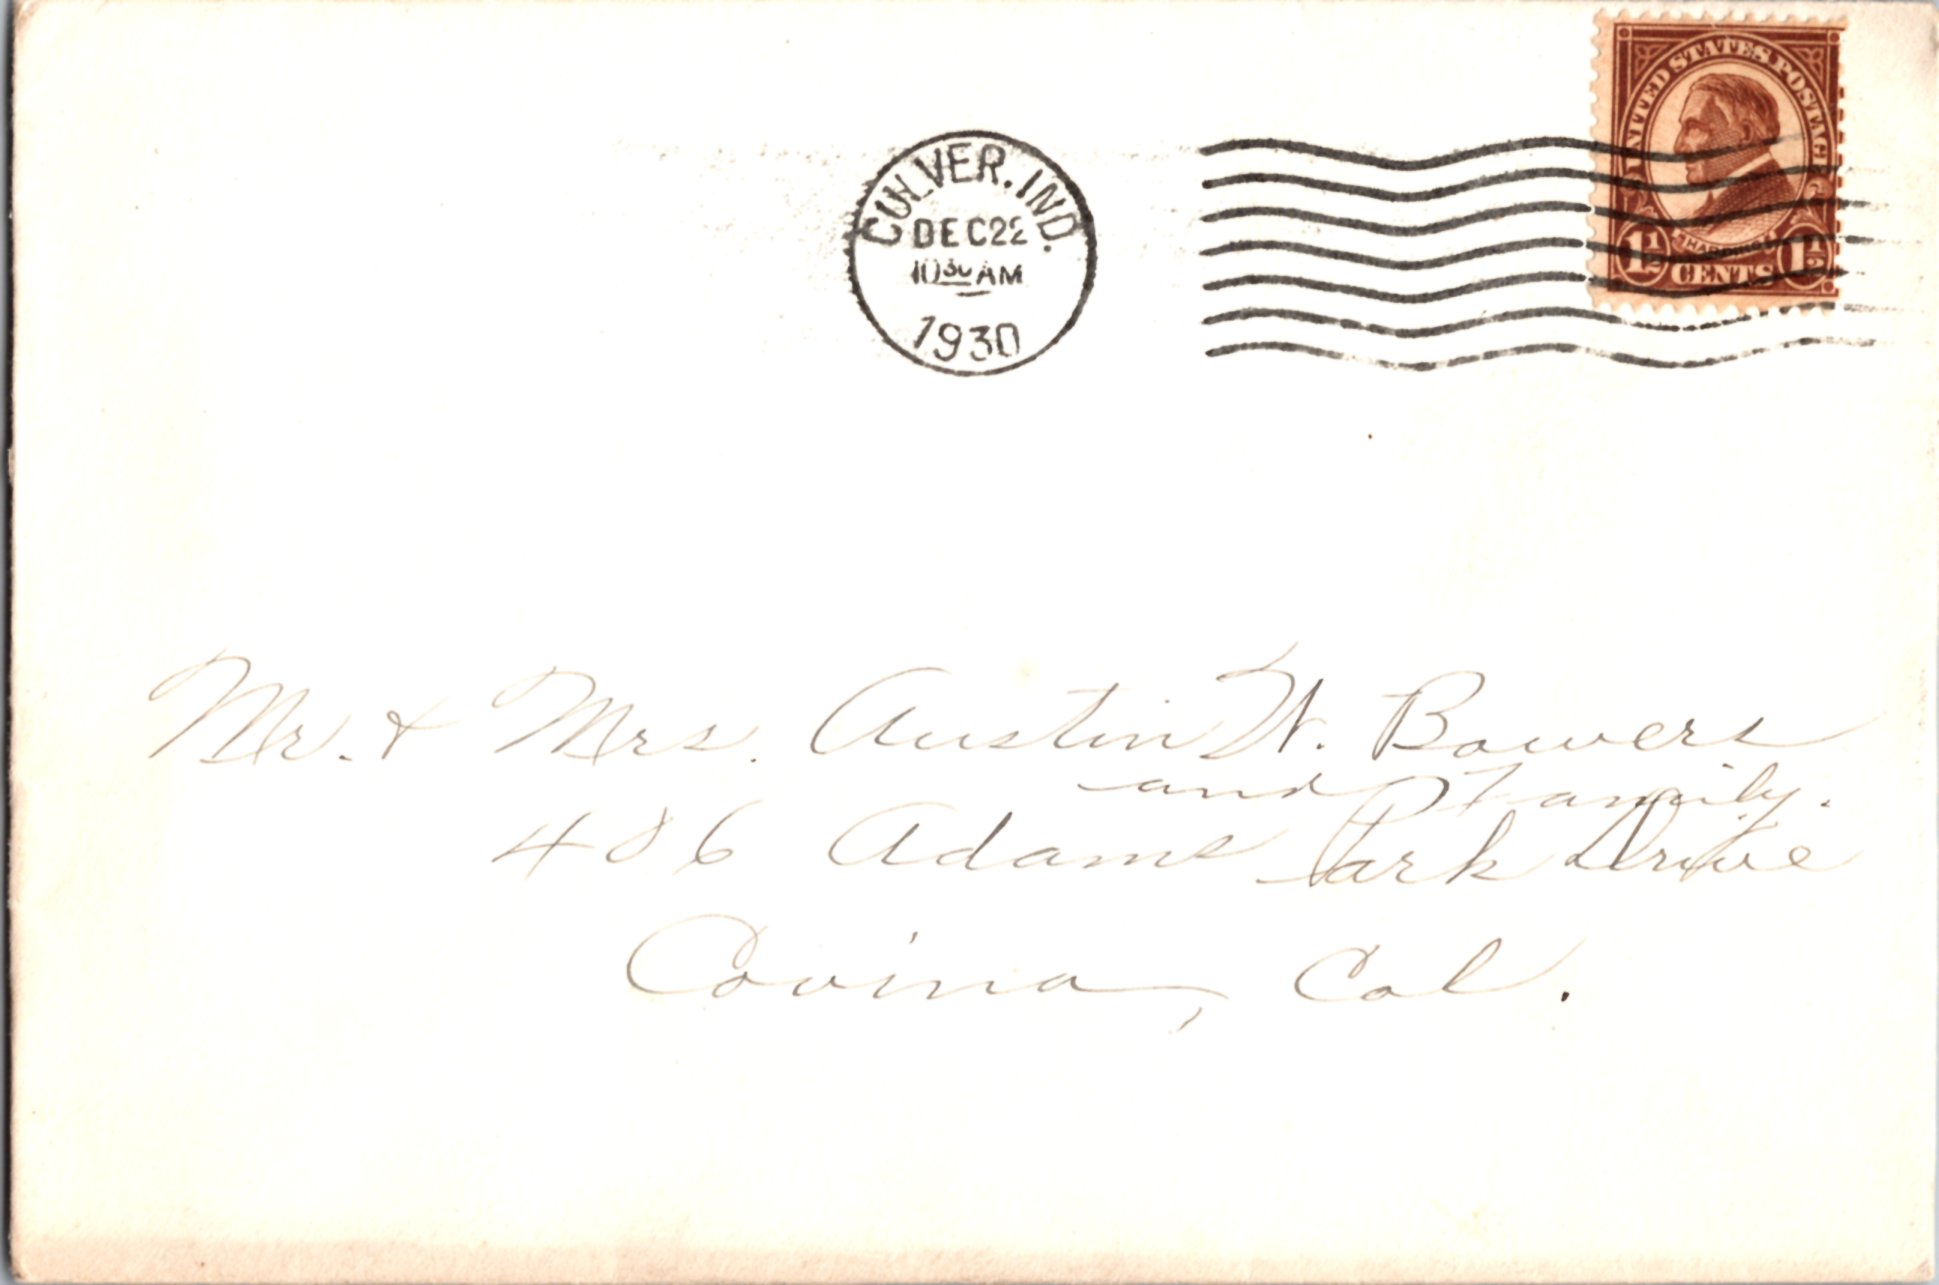 UNITED STATES POSTAGE
HARDING
1½ CENTS 1½
CULVER, IND.
DEC 22
10 30 AM
1930
Mr. & Mrs. Austin W. Bowers
and Family.
486 Adams Park Drive
Covina, Cal.